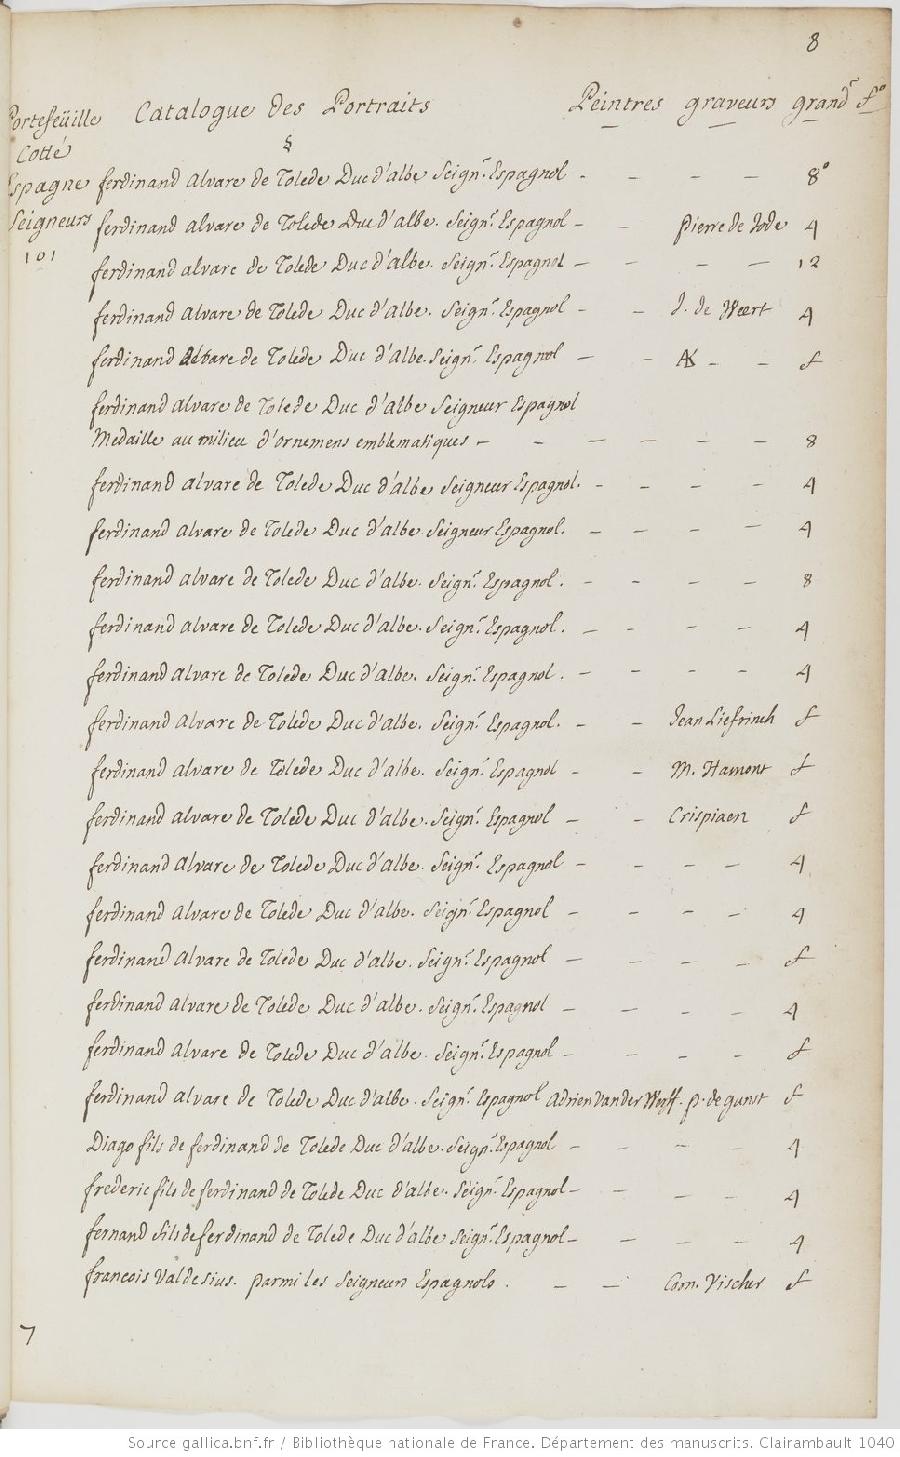 8
Portefeüille Catalogue des Portraits Peintres graveurs grandr fo
Cotté §
Espagne ferdinand alvare de Tolede Duc d'albe Seignr. Espagnol - - - - 8o
Seigneurs ferdinand alvare de Tolede Duc d'albe. Seignr. Espagnol - - Pierre de Jode 4
101
ferdinand alvare de Tolede Duc d'albe. Seignr. Espagnol - - - - 12
ferdinand alvare de Tolede Duc d'albe. Seignr. Espagnol - - J. de Weert 4
ferdinand alvare de Tolede Duc d'albe. Seignr. Espagnol - - AK - - f
ferdinand alvare de Tolede Duc d'albe Seigneur Espagnol
Medaille au milieu d'ornemens emblematiques - - - - - - 8
ferdinand alvare de Tolede Duc d'albe Seigneur Espagnol. - - - - 4
ferdinand alvare de Tolede Duc d'albe. Seigneur Espagnol. - - - - 4
ferdinand alvare de Tolede Duc d'albe. Seignr. Espagnol. - - - - 8
ferdinand alvare de Tolede Duc d'albe. Seignr. Espagnol. - - - - 4
ferdinand alvare de Tolede Duc d'albe. Seignr. Espagnol. - - - - 4
ferdinand alvare de Tolede Duc d'albe. Seignr. Espagnol. - - Jean Liefrinck f
ferdinand alvare de Tolede Duc d'albe. Seignr. Espagnol - - M. Hamont f
ferdinand alvare de Tolede Duc d'albe. Seignr. Espagnol - - Crispiaen f
ferdinand alvare de Tolede Duc d'albe. Seignr. Espagnol - - - - 4
ferdinand alvare de Tolede Duc d'albe. Seignr. Espagnol - - - - 4
ferdinand alvare de Tolede Duc d'albe. Seignr. Espagnol - - - - f
ferdinand alvare de Tolede Duc d'albe. Seignr. Espagnol - - - - 4
ferdinand alvare de Tolede Duc d'albe. Seignr. Espagnol - - - - f
ferdinand alvare de Tolede Duc d'albe. Seignr. Espagnol Adrien Vander Werff. p. de gunst f
Diago fils de ferdinand de Tolede Duc d'albe. Seignr. Espagnol - - - - 4
frederic fils de ferdinand de Tolede Duc d'albe. Seignr. Espagnol - - - - 4
fernand fils de ferdinand de Tolede Duc d'albe Seignr. Espagnol - - - - 4
francois Valdesius. parmi les Seigneurs Espagnols. - - Corn. Vischer f
7
Source gallica.bnf.fr / Bibliothèque nationale de France. Département des manuscrits. Clairambault 1040